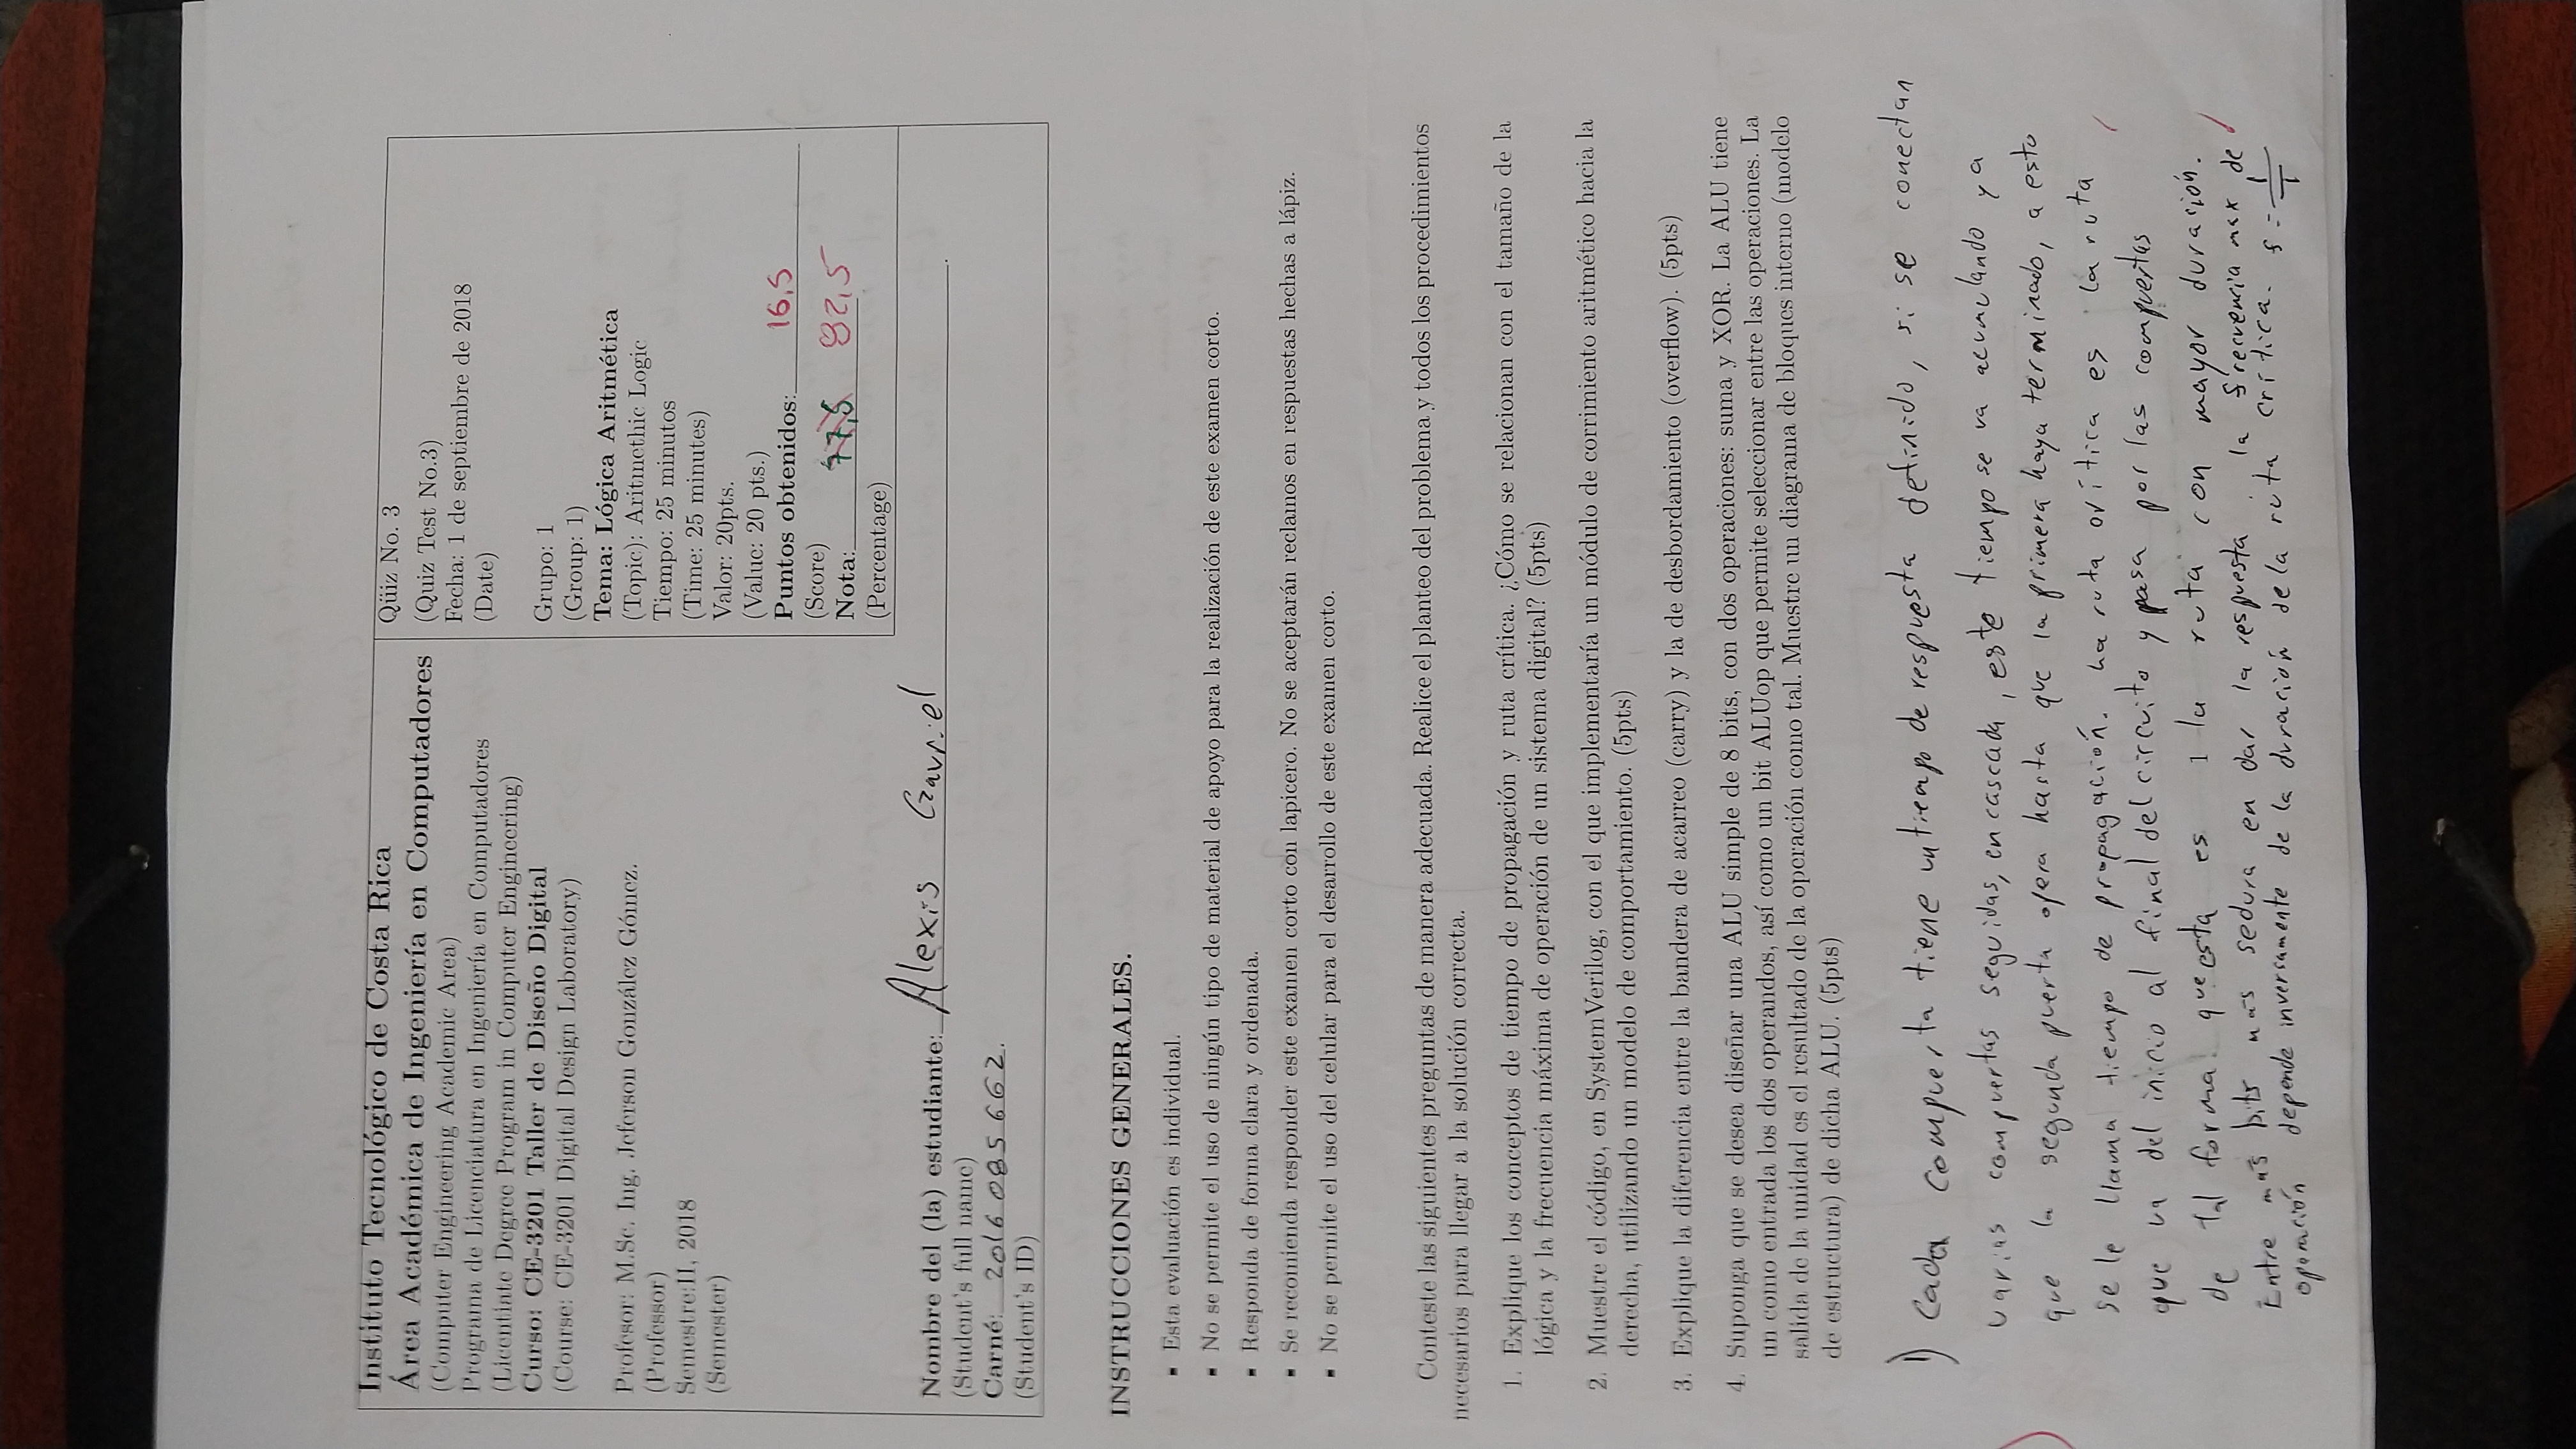 Instituto Tecnológico de Costa Rica
Área Académica de Ingeniería en Computadores
(Computer Engineering Academic Area)
Programa de Licenciatura en Ingeniería en Computadores
(Licentiate Degree Program in Computer Engineering)
Curso: CE-3201 Taller de Diseño Digital
(Course: CE-3201 Digital Design Laboratory)
Profesor: M.Sc. Ing. Jeferson González Gómez.
(Professor)
Semestre:II, 2018
(Semester)
Qüiz No. 3
(Quiz Test No.3)
Fecha: 1 de septiembre de 2018
(Date)
Grupo: 1
(Group: 1)
Tema: Lógica Aritmética
(Topic): Aritmethic Logic
Tiempo: 25 minutos
(Time: 25 minutes)
Valor: 20pts.
(Value: 20 pts.)
Puntos obtenidos: 16,5
(Score)
Nota: 77,5 82,5
(Percentage)
Nombre del (la) estudiante: Alexis Gavriel.
(Student's full name)
Carné: 2016085662.
(Student's ID)
INSTRUCCIONES GENERALES.
▪ Esta evaluación es individual.
▪ No se permite el uso de ningún tipo de material de apoyo para la realización de este examen corto.
▪ Responda de forma clara y ordenada.
▪ Se recomienda responder este examen corto con lapicero. No se aceptarán reclamos en respuestas hechas a lápiz.
▪ No se permite el uso del celular para el desarrollo de este examen corto.
Conteste las siguientes preguntas de manera adecuada. Realice el planteo del problema y todos los procedimientos
necesarios para llegar a la solución correcta.
1. Explique los conceptos de tiempo de propagación y ruta crítica. ¿Cómo se relacionan con el tamaño de la
lógica y la frecuencia máxima de operación de un sistema digital? (5pts)
2. Muestre el código, en SystemVerilog, con el que implementaría un módulo de corrimiento aritmético hacia la
derecha, utilizando un modelo de comportamiento. (5pts)
3. Explique la diferencia entre la bandera de acarreo (carry) y la de desbordamiento (overflow). (5pts)
4. Suponga que se desea diseñar una ALU simple de 8 bits, con dos operaciones: suma y XOR. La ALU tiene
un como entrada los dos operandos, así como un bit ALUop que permite seleccionar entre las operaciones. La
salida de la unidad es el resultado de la operación como tal. Muestre un diagrama de bloques interno (modelo
de estructura) de dicha ALU. (5pts)
1) Cada compuerta tiene un tiempo de respuesta definido, si se conectan
varias compuertas seguidas, en cascada, este tiempo se va acumulando ya
que la segunda puerta opera hasta que la primera haya terminado, a esto
se le llama tiempo de propagación. La ruta crítica es la ruta
que va del inicio al final del circuito y pasa por las compuertas
de tal forma que esta es la ruta con mayor duración.
Entre más bits más se dura en dar la respuesta. la frecuencia max de
operación depende inversamente de la duración de la ruta crítica. f = 1/T